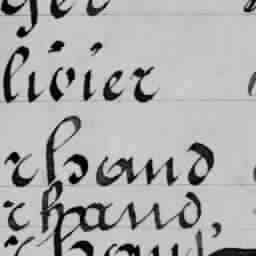 ger
livier
rhand
rhand,